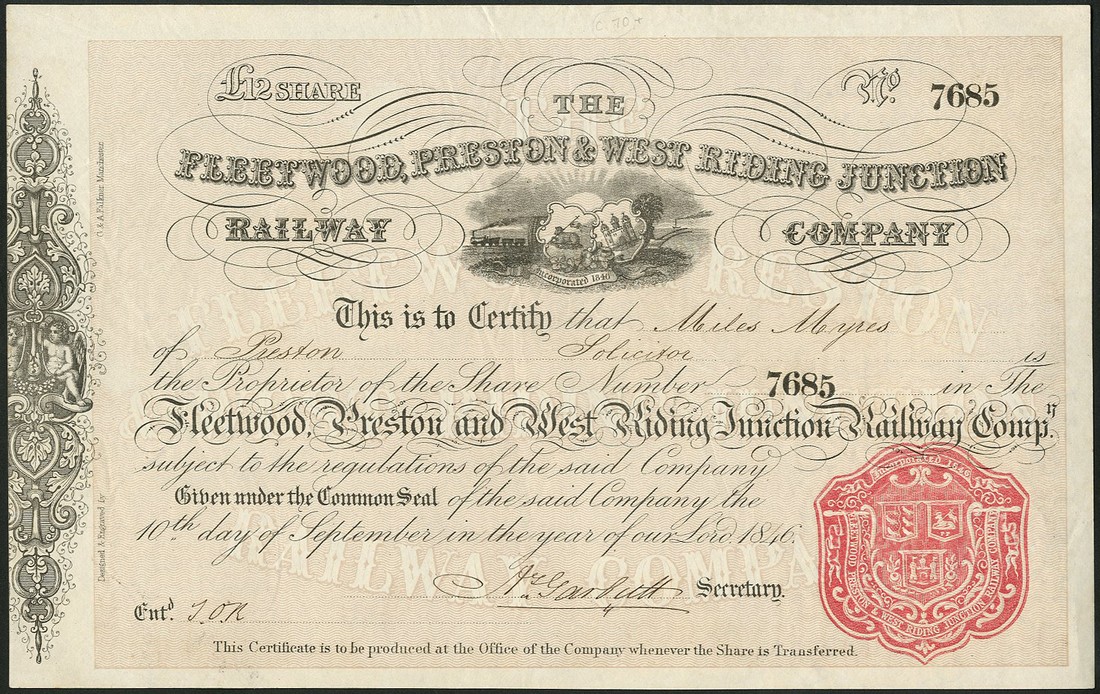 C. 70+
£12 SHARE
No 7685
THE
FLEETWOOD, PRESTON & WEST RIDING JUNCTION
RAILWAY COMPANY
Incorporated 1846
This is to Certify that Miles Myres
of Preston Solicitor is
the Proprietor of the Share Number 7685 in The
Fleetwood, Preston and West Riding Junction Railway Compy.
subject to the regulations of the said Company
Given under the Common Seal of the said Company the
10th day of September in the year of our Lord 1846.
Secretary.
Entd J.O.R
This Certificate is to be produced at the Office of the Company whenever the Share is Transferred.
Incorporated 1846
FLEETWOOD PRESTON & WEST RIDING JUNCTION RAILWAY COMPANY
Designed & Engraved by
Falkner Manchester
THE
FLEETWOOD PRESTON
RAILWAY COMPANY